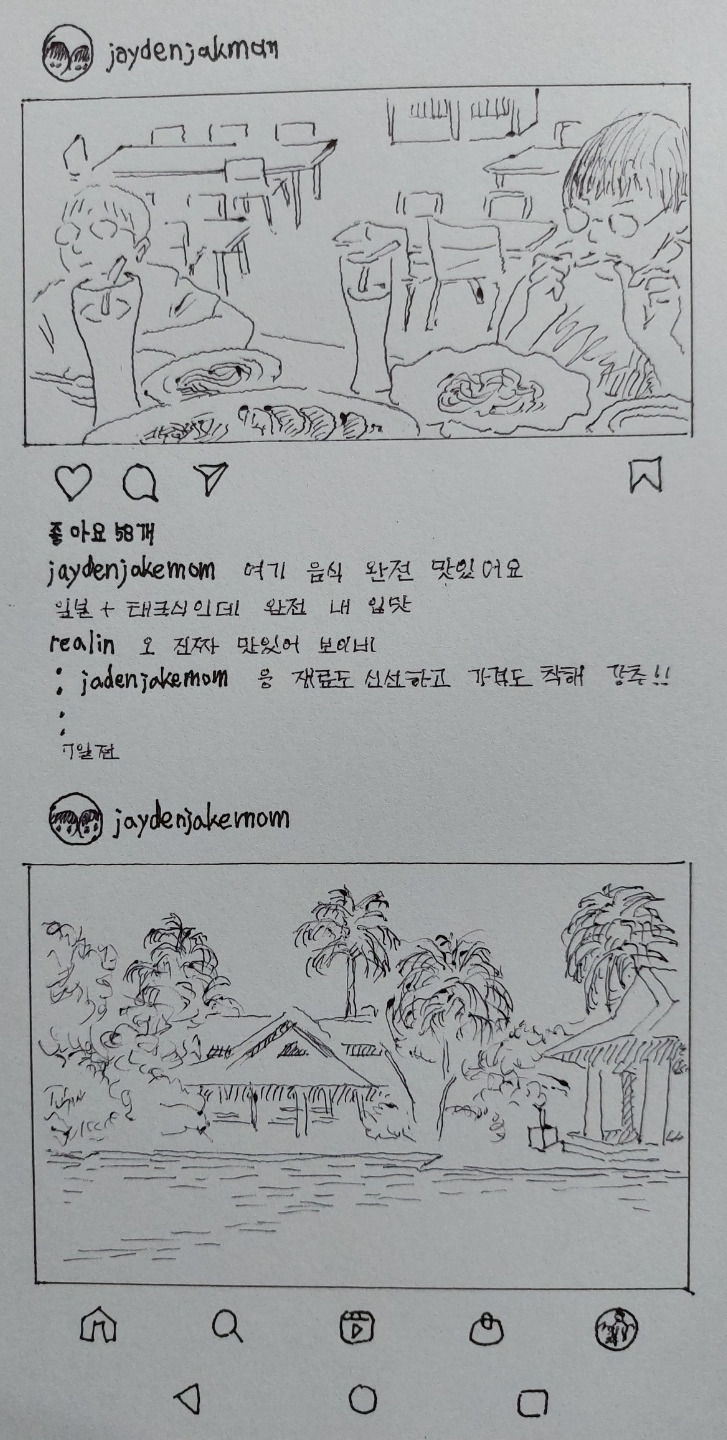 jaydenjakmom
좋아요 58개
jaydenjakemom 여기 음식 완전 맛있어요
일본 + 태국식인데 완전 내 입맛
realin 오 진짜 맛있어 보이네
: jadenjakemom 응 재료도 신선하고 가격도 착해 강추!!
7일 전
jaydenjakemom